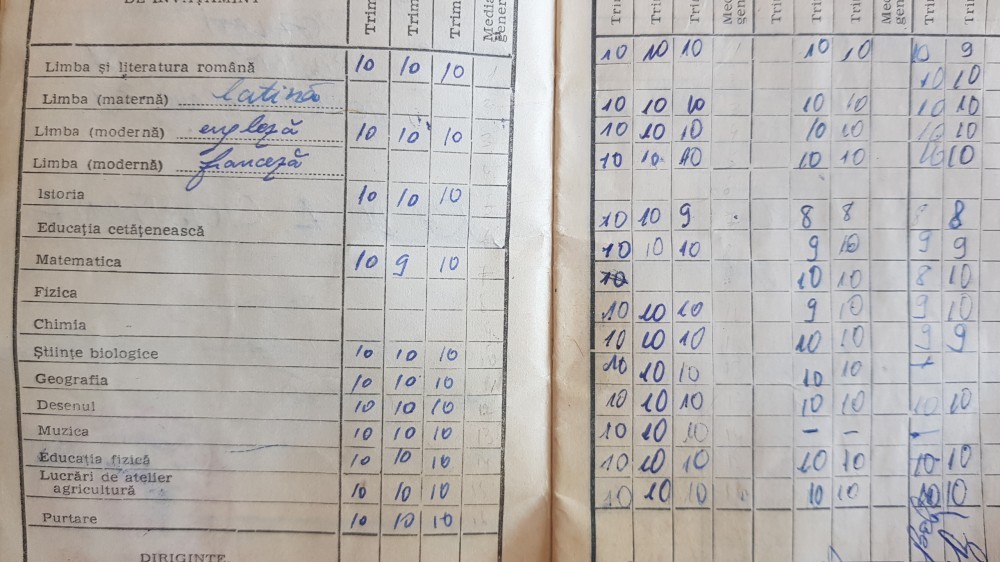 DE ÎNVĂȚĂMÂNT Trim Trim Trim Media gener
Limba și literatura română 10 10 10
Limba (maternă) latină
Limba (modernă) engleză 10 10 10
Limba (modernă) franceză
Istoria 10 10 10
Educația cetățenească
Matematica 10 9 10
Fizica
Chimia
Științe biologice 10 10 10
Geografia 10 10 10
Desenul 10 10 10
Muzica 10 10 10
Educația fizică 10 10 10
Lucrări de atelier
agricultură 10 10 10
Purtare 10 10 10
DIRIGINTE
Tri Trim Trim Med gen Trim Trim Trim Med gen Trim Trim
10 10 10 10 10 10 9
10 10
10 10 10 10 10 10 10
10 10 10 10 10 10 10
10 10 10 10 10 10 10
10 10 9 8 8 8
10 10 10 9 10 9 9
10 10 10 8 10
10 10 10 9 10 9 10
10 10 10 10 10 9 9
10 10 10 10 10
10 10 10 10 10 10 10
10 10 10 - -
10 10 10 10 10 10 10
10 10 10 10 10 10 10